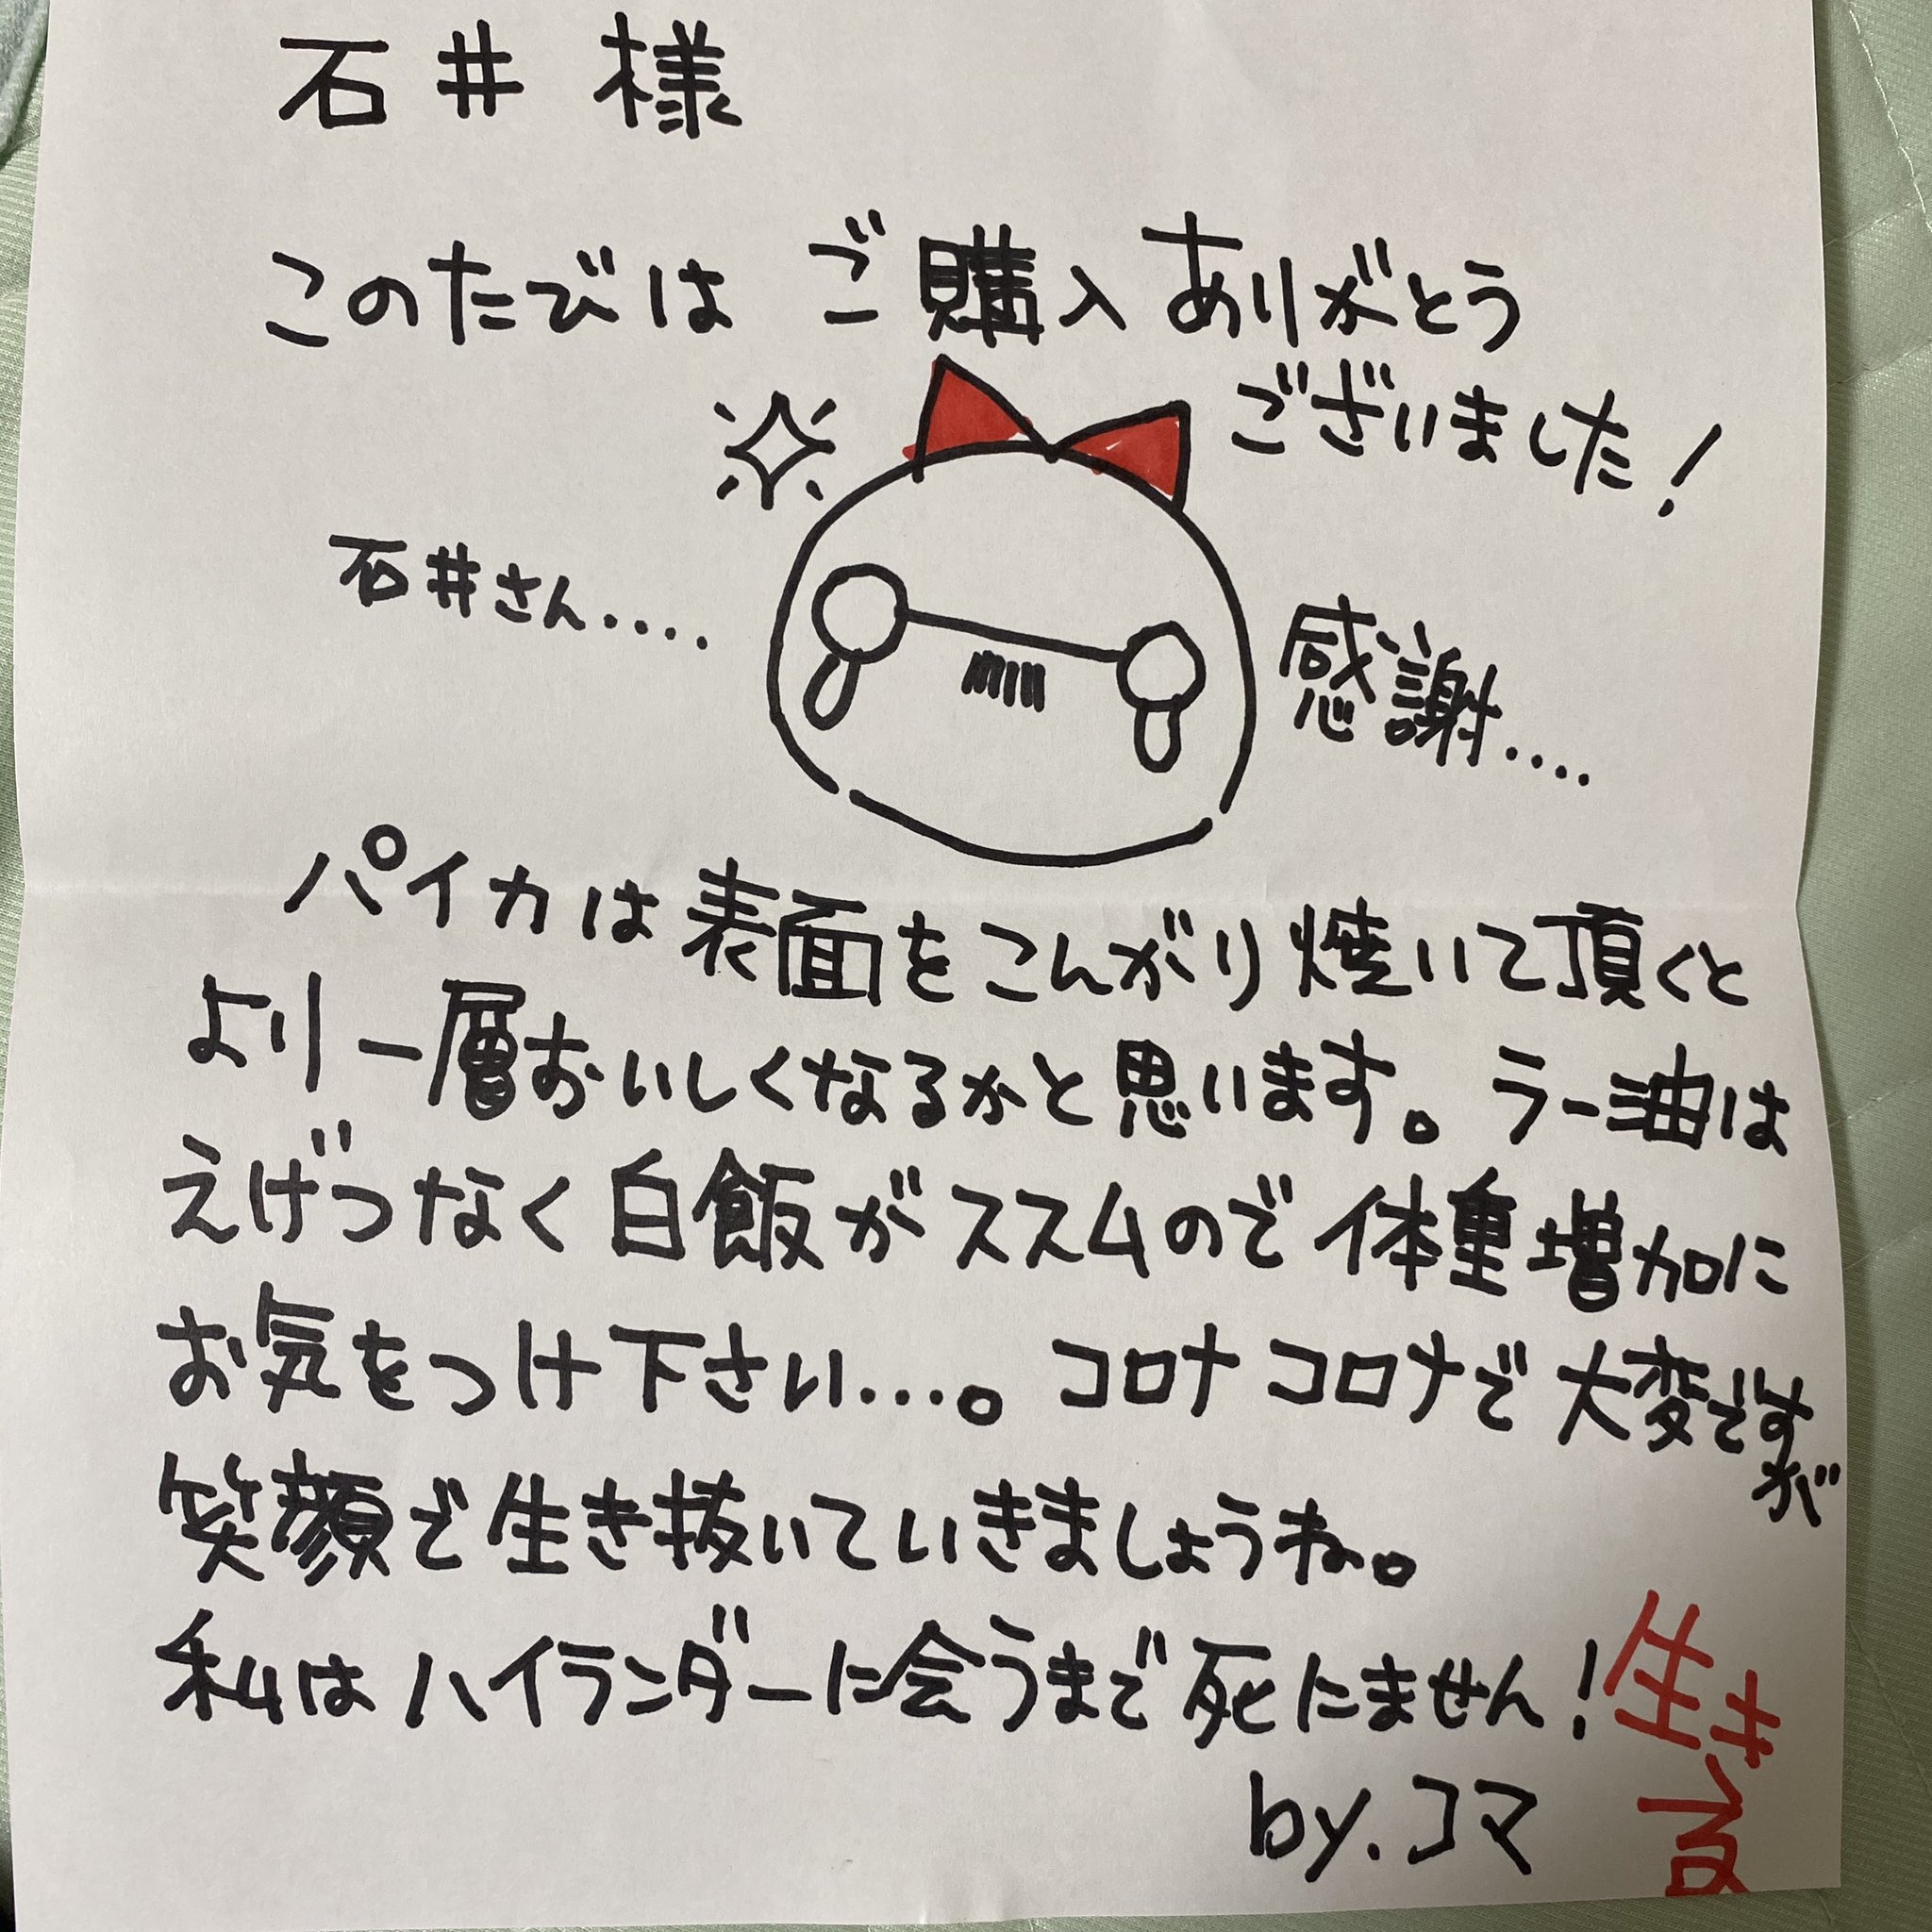 石井 様
このたびは ご購入ありがとう
ございました!
石井さん....
感謝....
パイカは表面をこんがり焼いて頂くと
より一層おいしくなるかと思います。ラー油は
えげつなく白飯がススムので体重増加に
お気をつけ下さい...。コロナコロナで大変ですが
笑顔で生き抜いていきましょうね。
私はハイランダーに会うまで死にません!
生きる
by.コマ